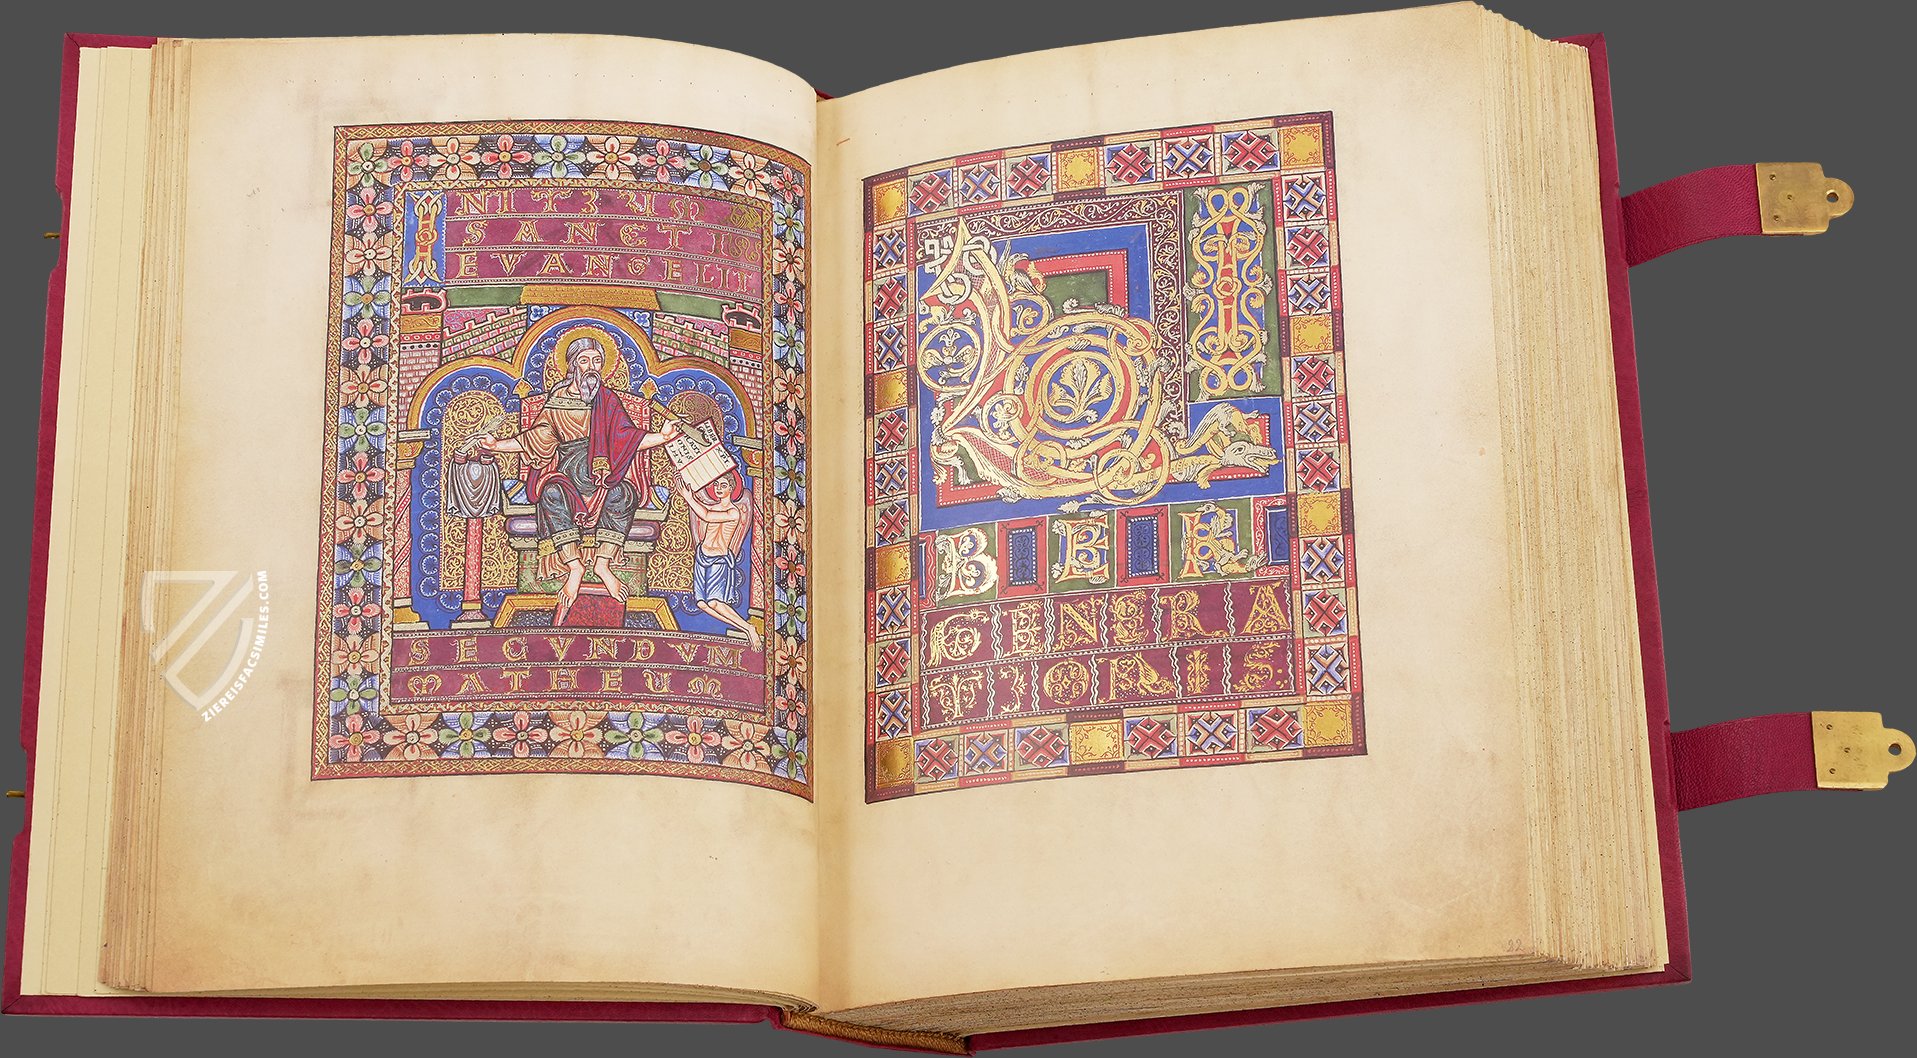 INITIUM
SANCTI
EVANGELII
SECVNDVM
MATHEUM
LI
BER
GENERA
TIONIS
22
ZIEREISFACSIMILES.COM